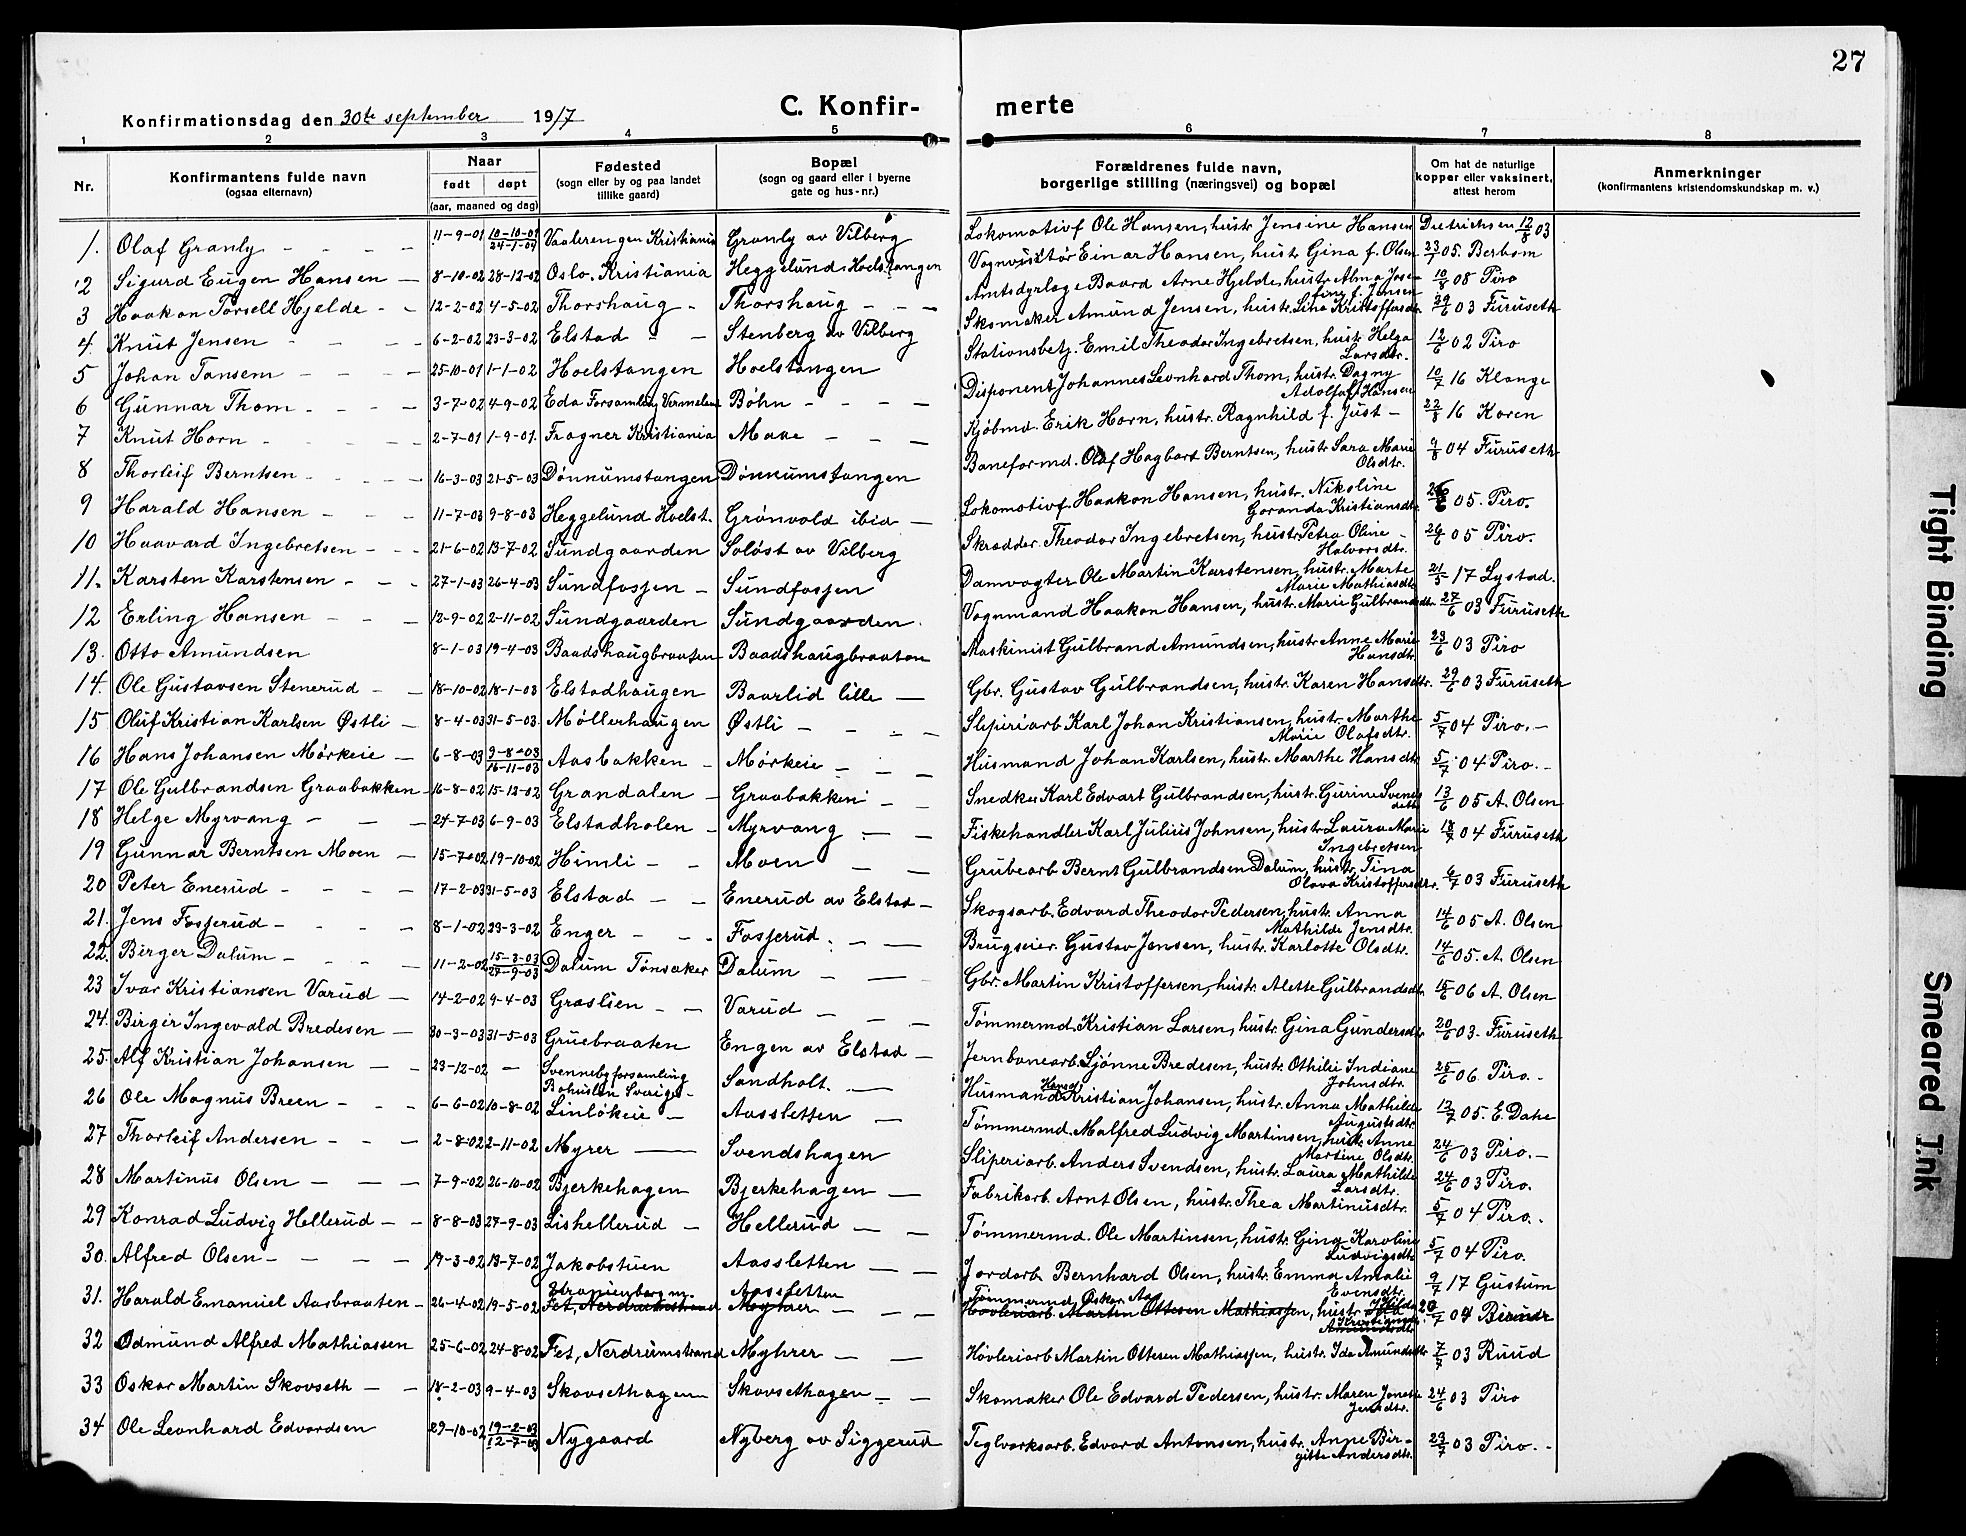 27
Konfirmationsdag den 30te september 1917
C. Konfir- merte
1 2 3 4 5 6 7 8
Nr.
Konfirmantens fulde navn
(ogsaa efternavn)
Naar
født døpt
(aar, maaned og dag)
Fødested
(sogn eller by og paa landet
tillike gaard)
Bopæl
(sogn og gaard eller i byerne
gate og hus-nr.)
Forældrenes fulde navn,
borgerlige stilling (næringsvei) og bopæl
Om hat de naturlige
kopper eller vaksinert,
attest herom
Anmerkninger
(konfirmantens kristendomskundskap m. v.)
1. Olaf Granly - - - - 11-9-01 10-10-01 24-1-04 Vaalerengen Kristiania Granly av Vilberg Lokomotivf Ole Hansen, hustr Jensine Hansen Dietrichsen 12/8 03
2 Sigurd Eugen Hansen - 8-10-02 28-12-02 Oslo. Kristiania Heggelund. Hoelstangen Einar Hansen, hustr. Gina f. Olsen 23/7 05. Berbom
3 Haakon Torsell Hjelde - - 12-2-02 4-5-02 Thorshaug - Thorshaug - - Amtsdyrlæge Baard Arne Hjelde, hustr. Alma Josefine f. Jensen 10/8 08 Piro
4. Knut Jensen - - - - 6-2-02 23-3-02 Elstad - - Stenberg av Vilberg Skomaker Amund Jensen, hustr. Lina Kristoffersdtr. 29/6 03 Furuseth
5 Johan Tansem - - - - 25-10-01 1-1-02 Hoelstangen Hoelstangen Stationsbetj. Emil Theodor Ingebretsen, hustr Helga Larsdtr. 12/6 02 Piro
6 Gunnar Thom - - - - 3-7-02 4-9-02 Eda Forsamling Vermeland Bøhn - - - - Disponent Johannes Leonhard Thom, hustr. Dagny Adolfa f. Hansen 10/7 16 Klange
7 Knut Horn - - - - 2-7-01 1-9-01. Frogner Kristiania Moae - - - Kjøbmd. Erik Horn, hustr. Ragnhild f. Just - 22/8 16 Koren
8 Thorleif Berntsen - - - - 16-3-03 21-5-03 Dønnumstangen Dønnumstangen Baneformd. Olaf Hagbart Berntsen, hustr Sara Marie Olsdtr. 9/8 04 Furuseth
9 Harald Hansen - - - 11-7-03 9-8-03 Heggelund Hoelst. Grønvold ibid - Lokomotivf. Haakon Hansen, hustr. Nikoline Goranda Kristiansdtr. 05. Piro.
10 Haavard Ingebretsen - - - 21-6-02 13-7-02 Sundgaarden Soløst av Vilberg Skrædder. Theodor Ingebretsen, hustr Petra Oline Halvorsdtr. 26/6 05 Piro.
11. Karsten Karstensen - - - 27-1-03 26-4-03 Sundfossen - Sundfossen Damvogter Ole Martin Karstensen, hustr. Marte Marie Mathiasdtr. 21/5 17 Lystad.
12 Erling Hansen - - - 12-9-02 2-11-02 Sundgaarden Sundgaarden. Vognmand Haakon Hansen, hustr. Marie Gulbrandsdtr. 27/6 03 Furuseth
13. Otto Amundsen 8-1-03 19-4-03 Baadshaugbraaten Baadshaugbraaten Maskinist Gulbrand Amundsen, hustr Anne Marie Hansdtr 23/6 03 Piro
14. Ole Gustavsen Stenerud - - 18-10-02 18-1-03 Elstadhaugen Baarlid lille - Gbr. Gustav Gulbrandsen, hustr. Karen Hansdtr. 29/6 03 Furuseth
15 Oluf Kristian Karlsen Østli - 8-4-03 31-5-03. Møllerhaugen Østli - - - Sliperiarb Karl Johan Kristiansen, hustr. Marthe Marie Olafsdtr. 5/7 04 Piro. -
16 Hans Johansen Mørkeie - 6-8-03 9-8-03 16-11-03 Aasbakken - Mørkeie - - - Husmand Johan Karlsen, hustr. Marthe Hansdtr 5/7 04 Piro. -
17 Ole Gulbrandsen Graabakken - 16-8-02 15-12-02 Grandalen - Graabakken - - Snedker Karl Edvart Gulbrandsen, hustr. Gurine Svensdatt. 13/6 05 A. Olsen
18 Helge Myrvang - - - 24-7-03 6-9-03 Elstadholen - Myrvang - - Fiskehandler Karl Julius Johnsen, hustr Laura Marie Ingebretsen 18/7 04 Furuseth
19 Gunnar Berntsen Moen - 15-7-02 19-10-02 Himli - - Moen - - Grubearb Bernt Gulbrandsen Dalum, hustr. Tina Olava Kristoffersdtr. 6/7 03 Furuseth
20 Peter Enerud - - - - 17-2-03 31-5-03 Elstad - - Enerud av Elstad - Skogsarb. Edvard Theodor Pedersen, hustr. Anna Mathilde Jensdtr. 14/6 05 A. Olsen
21. Jens Fosserud - - - - 8-1-02 23-3-02 Enger - - - Fosserud. - - Brugseier. Gustav Jensen, hustr. Karlotte Olsdtr. 14/6 05. A. Olsen
22. Birger Dalum - - - - 11-2-02 15-3-03 27-9-03 Dalum Tønsaker Dalum - - Gbr. Martin Kristoffersen, hustr. Alette Gulbrandsdtr. 15/6 06 A. Olsen
23 Ivar Kristiansen Varud - 14-2-02 9-4-03 Graslien - - Varud - - - Tømmermd. Kristian Larsen, hustr. Gina Gundersdtr. 20/6 03. Furuseth
24. Birger Ingevald Bredesen - 30-3-03 31-5-03 Gruebraaten Engen av Elstad - Jernbanearb. Sjønne Bredesen, hustr. Othilie Indiane Johnsdtr. 25/6 06 Piro. -
25. Alf Kristian Johansen - - 23-12-02 - Svennebyforsamling Bohuslen Sverige - Sandholt. - Husmand Hans Kristian Johansen, hustr. Anna Mathilde Augustsdtr. 12/7 05. E. Dahe
26 Ole Magnus Breen - - - 6-6-02 10-8-02 Linløkeie - Aassletten - Tømmermd. Malfred Ludvig Martinsen, hustr. Anne Martine Olsdtr. 24/6 03 Piro. -
27 Thorleif Andersen - - - 2-8-02 2-11-02 Myrer - Svendshagen Sliperiarb. Anders Svendsen, hustr. Laura Mathilde Larsdtr. 24/6 03 Piro.
28 Martinus Olsen - - - 7-9-02 26-10-02 Bjerkehagen Bjerkehagen - Fabrikarb. Arnt Olsen, hustr. Thea Martinusdtr. 5/7 04 Piro. -
29 Konrad Ludvig Hellerud - - 8-8-03 27-9-03 Lishellerud - Hellerud - Tømmermd. Ole Martinsen, hustr. Gina Karoline Ludvigsdtr. 5/7 04 Piro.
30. Alfred Olsen - - - - 19-3-02 13-7-02 Jakobstuen Aassletten - - Jordarb. Bernhard Olsen, hustr. Emma Amalie Evensdtr. 9/7 17 Gustum
31. Harald Emanuel Aasbraaten - 26-4-02 19-5-02 Fet, Nerdrumstrand Aassletten Myhrer - - - Tømmermd. Oskar Aas Høvleriarb. Martin Ottesen Mathiassen, hustr. Hilda Kristiansdtr. Ida Amundsdtr 20/7 04
32 Odmund Alfred Mathiassen 25-6-02 24-8-02 Fet, Nerdrumstrand Myhrer - - Høvleriarb Martin Ottesen Mathiassen, hustr. Ida Amundsdtr 7/7 03 Ruud
33 Oskar Martin Skovseth - - 18-2-03 9-4-03 Skovsethagen Skovsethagen - - Skomaker Ole Edvard Pedersen, hustr. Maren Jonette Jensdtr. 24/6 03 Piro
34 Ole Leonhard Edvardsen 29-10-02 19-2-03 12-7-03 Nygaard Nyberg av Siggerud Teglverksarb. Edvard Antonsen, hustr. Anne Birgitte Andersdtr. 23/7 03 Piro. -
Tight Binding
Smeared Ink